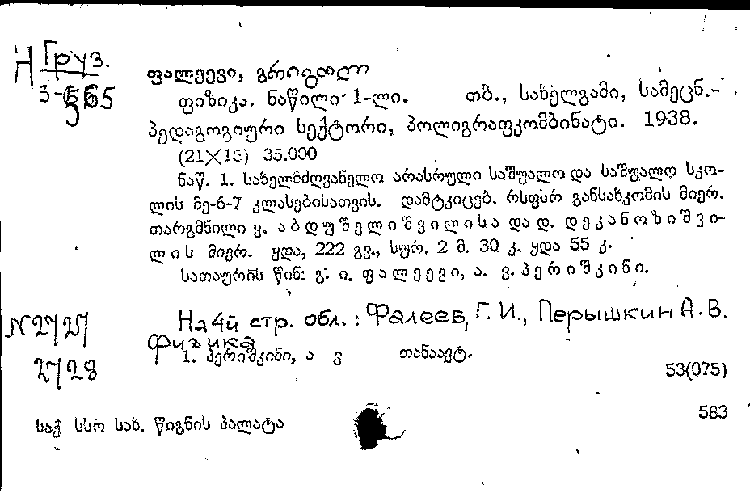 Н Груз.
3-565
ფალეევი, გრიგოლ
ფიზიკა. ნაწილი 1-ლი. თბ., სახელგამი, სამეცნ.-
პედაგოგიური სექტორი, პოლიგრაფკომბინატი. 1938.
(21X15) 35.000
ნაწ. 1. სახელმძღვანელო არასრული საშუალო და საშუალო სკო-
ლის მე-6-7 კლასებისათვის. დამტკიცებ. რსფსრ განსახკომის მიერ.
თარგმნილი ვ. აბდუშელიშვილისა და დ. დეკანოზიშვი-
ლის მიერ. ყდა, 222 გვ., სურ. 2 მ. 30 კ. ყდა 55 კ.
სათაურის წინ: გ. ი. ფალეევი, ა. ვ. პერიშკინი.
N2727
2728
На 4й стр. обл.: Фалеев, Г. И., Перышкин А. В.
Физика
1. პერიშკინი, ა ვ თანაავტ.
53(075)
583
საქ სსრ სახ. წიგნის პალატა